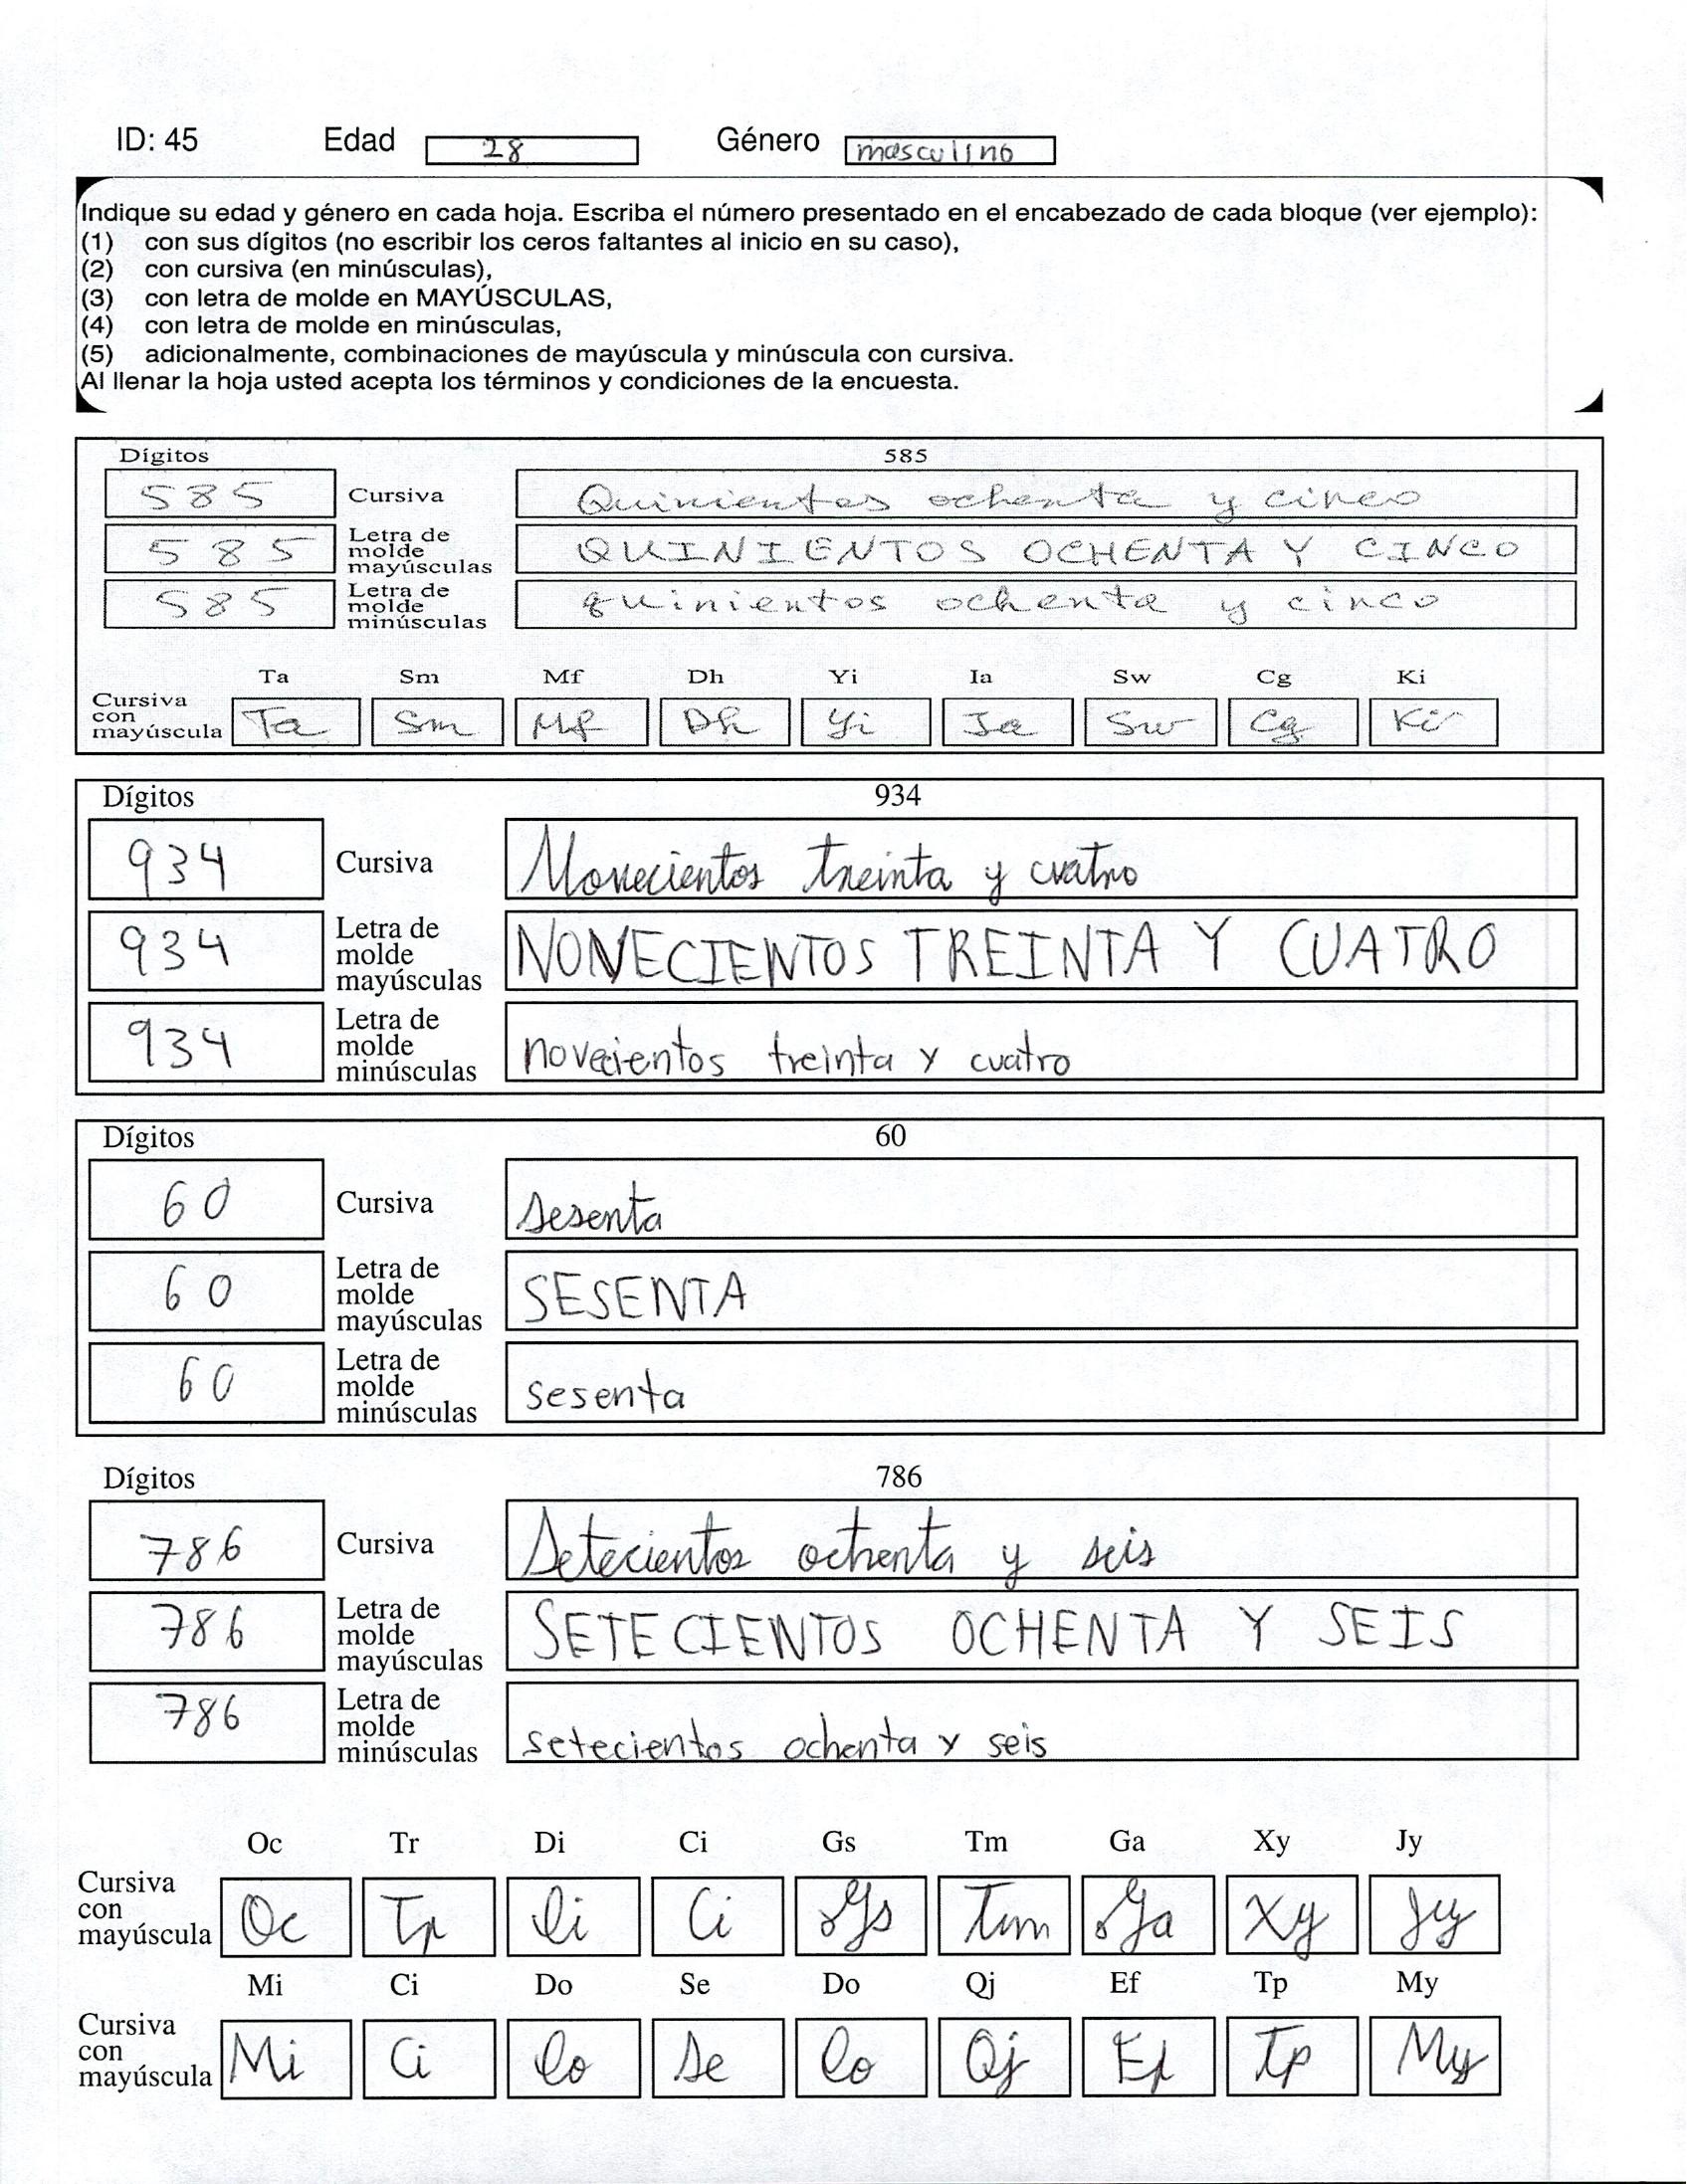 ID: 45 Edad 28 Género masculino
Indique su edad y género en cada hoja. Escriba el número presentado en el encabezado de cada bloque (ver ejemplo):
(1) con sus dígitos (no escribir los ceros faltantes al inicio en su caso),
(2) con cursiva (en minúsculas),
(3) con letra de molde en MAYÚSCULAS,
(4) con letra de molde en minúsculas,
(5) adicionalmente, combinaciones de mayúscula y minúscula con cursiva.
Al llenar la hoja usted acepta los términos y condiciones de la encuesta.
Dígitos 585
585 Cursiva Quinientos ochenta y cinco
585 Letra de molde mayúsculas QUINIENTOS OCHENTA Y CINCO
585 Letra de molde minúsculas quinientos ochenta y cinco
Ta Sm Mf Dh Yi Ia Sw Cg Ki
Cursiva con mayúscula Ta Sm Mf Dh Yi Ia Sw Cg Ki
Dígitos 934
934 Cursiva Novecientos treinta y cuatro
934 Letra de molde mayúsculas NOVECIENTOS TREINTA Y CUATRO
934 Letra de molde minúsculas novecientos treinta y cuatro
Dígitos 60
60 Cursiva sesenta
60 Letra de molde mayúsculas SESENTA
60 Letra de molde minúsculas sesenta
Dígitos 786
786 Cursiva Setecientos ochenta y seis
786 Letra de molde mayúsculas SETECIENTOS OCHENTA Y SEIS
786 Letra de molde minúsculas setecientos ochenta y seis
Oc Tr Di Ci Gs Tm Ga Xy Jy
Cursiva con mayúscula Oc Tr Di Ci Gs Tm Ga Xy Jy
Mi Ci Do Se Do Qj Ef Tp My
Cursiva con mayúscula Mi Ci Do Se Do Qj Ef Tp My